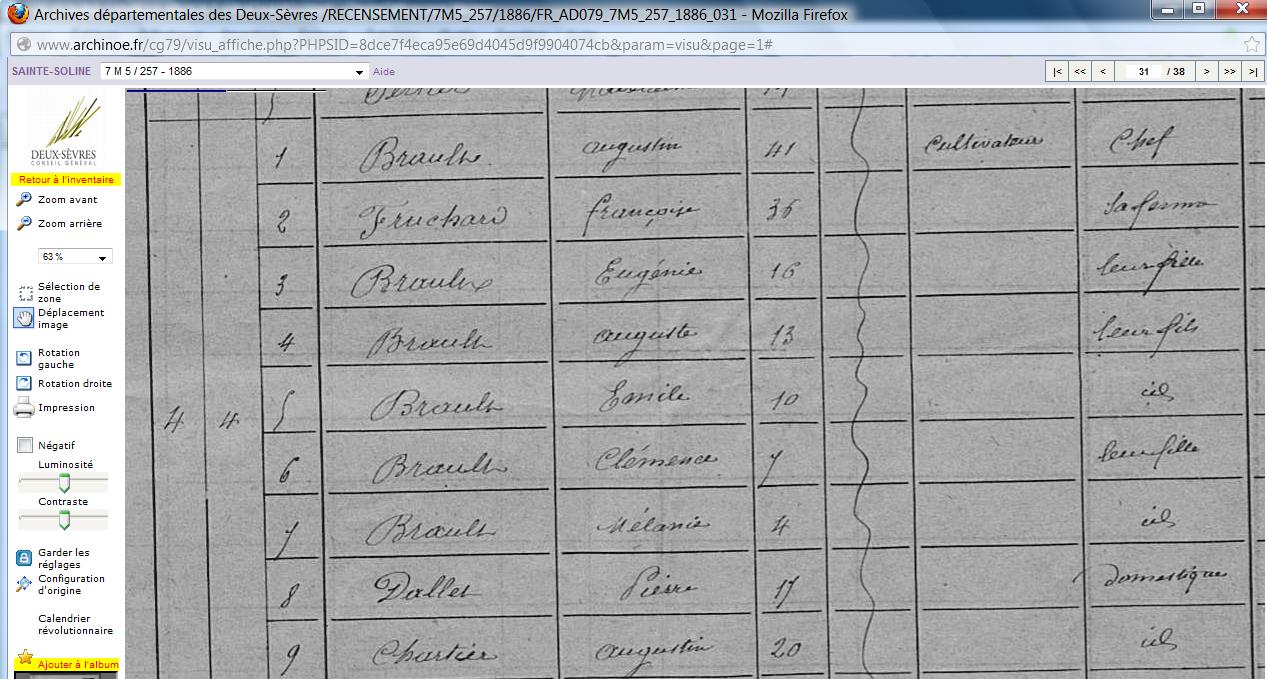 Archives départementales des Deux-Sèvres /RECENSEMENT/7M5_257/1886/FR_AD079_7M5_257_1886_031 - Mozilla Firefox
www.archinoe.fr/cg79/visu_affiche.php?PHPSID=8dce7f4eca95e69d4045d9f9904074cb&param=visu&page=1#
SAINTE-SOLINE 7 M 5 / 257 - 1886 Aide |< << < 31 / 38 > >> >|
DEUX-SÈVRES
CONSEIL GÉNÉRAL
Retour à l'inventaire
Zoom avant
Zoom arrière
63 %
Sélection de
zone
Déplacement
image
Rotation
gauche
Rotation droite
Impression
Négatif
Luminosité
Contraste
Garder les
réglages
Configuration
d'origine
Calendrier
révolutionnaire
Ajouter à l'album
1 Brault augustin 41 Cultivateur Chef
2 Fruchard françoise 36 sa femme
3 Brault Eugénie 16 leur fille
4 Brault auguste 13 leur fils
4 4 5 Brault Emile 10 id
6 Brault Clémence 7 leur fille
7 Brault Mélanie 4 id
8 Dallet Pierre 17 domestique
9 Chartier augustin 20 id